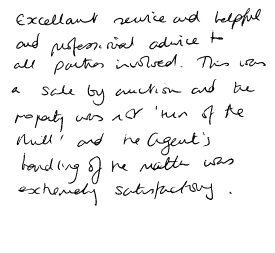 Excellent service and helpful
and professional advice to
all parties involved. This was
a sale by auction and the
property was not 'run of the
mill' and the Agent's
handling of the matter was
extremely satisfactory.